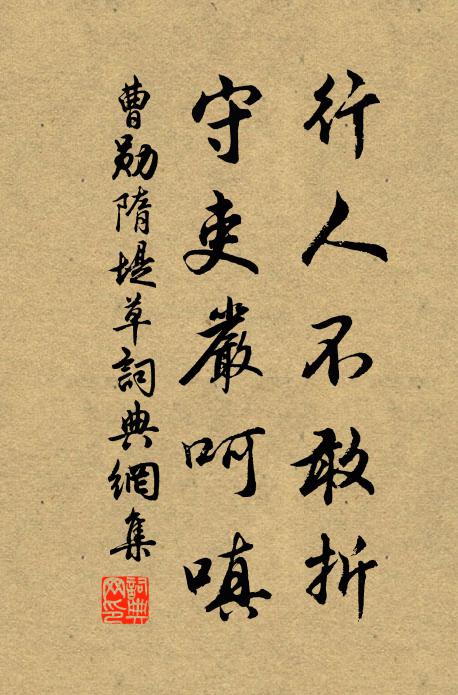 行人不敢折
守吏嚴呵嗔
曹勛隋堤草詞典網集
詞典網印